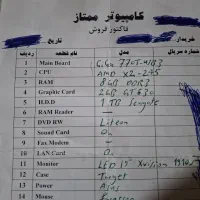 کامپیوتر ممتاز
فاکتور فروش
خریدار تاریخ
شماره سریال مدل نام قطعه ردیف
1 Main Board Giga
2 CPU AMD X2-245
3 RAM 8GB DDR3
4 Graphic Card 2GB GT 630
5 H.D.D 1 TB Seagate
6 RAM Reader
7 DVD RW Liteon
8 Sound Card On
9 Fax Modem
10 LAN Card On
11 Monitor LED 19" Xvision
12 Case Target
13 Power
14 Mouse